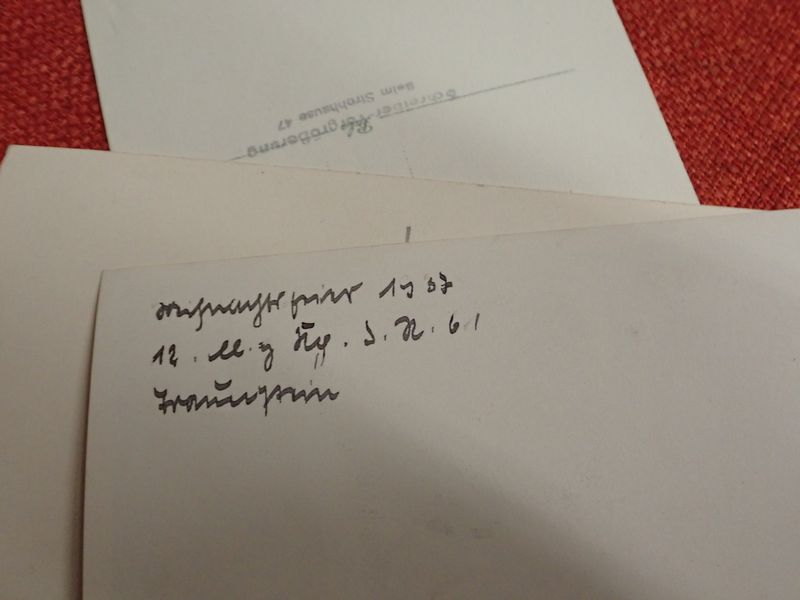 Schreiber-Vergrößerung
Beim Strohhause 47
Weihnachtsfeier 1937
12. M.g Kp. I.R. 61
Traunstein